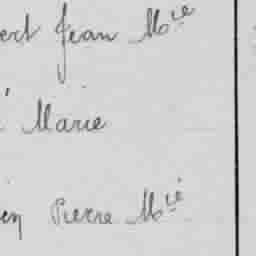 ert Jean Mie
Marie
in Pierre Mie